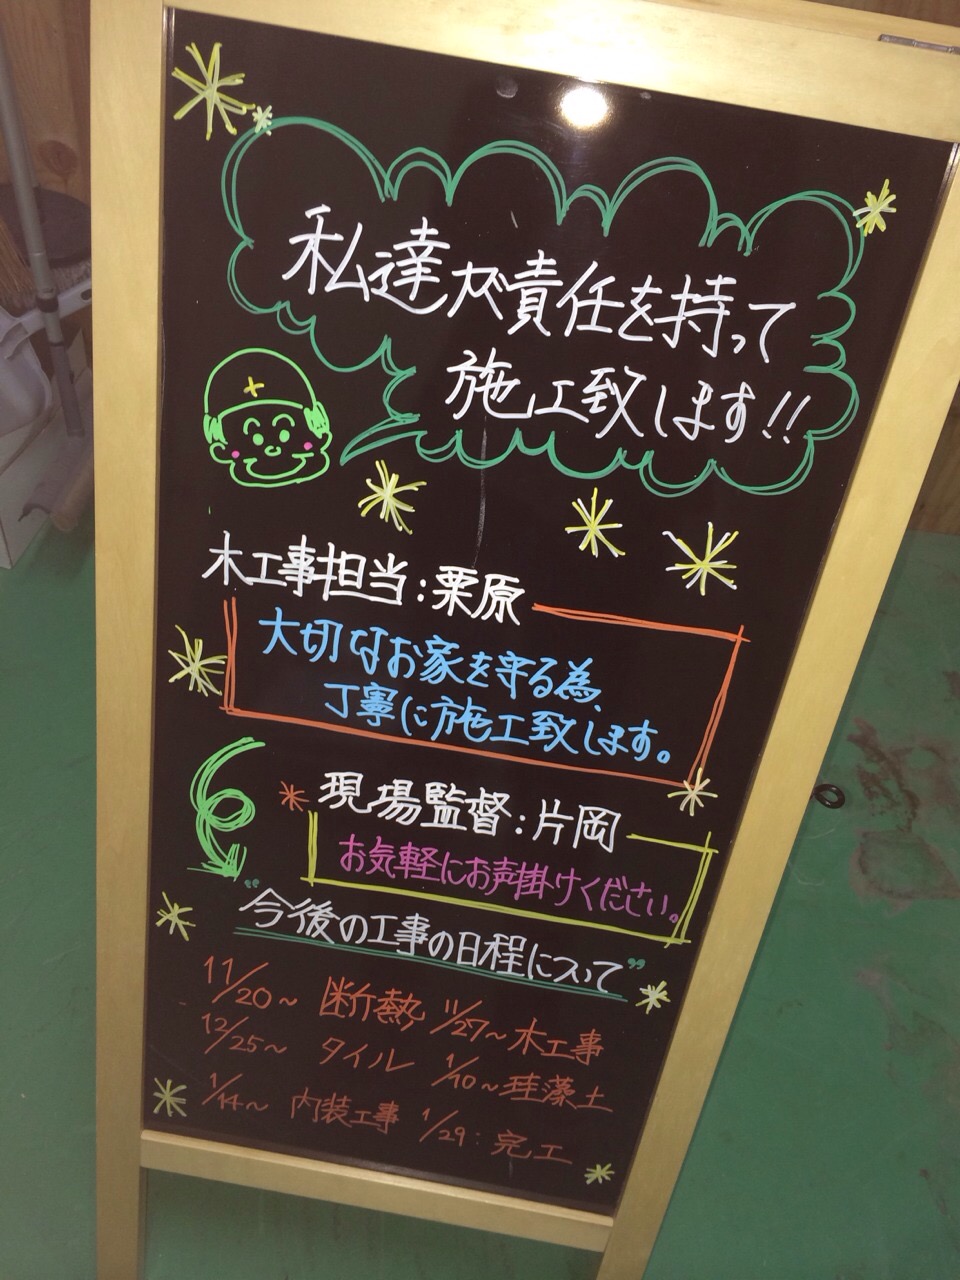 私達が責任を持って
施工致します!!
木工事担当:栗原
大切なお家を守る為、
丁寧に施工致します。
*現場監督:片岡
お気軽にお声掛けください。
“今後の工事の日程について”
11/20~ 断熱 11/27~木工事
12/25~ タイル 1/10~珪藻土
1/14~ 内装工事 1/29:完工